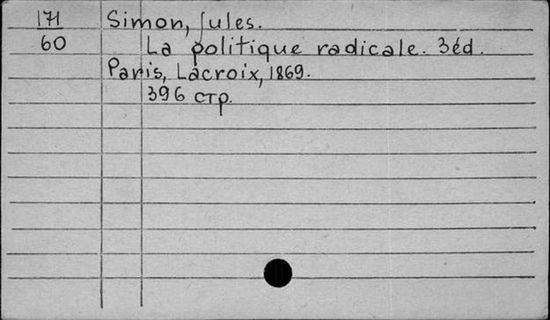 171 Simon, Jules.
60 La politique radicale. 3éd.
Paris, Lacroix, 1869.
396 стр.